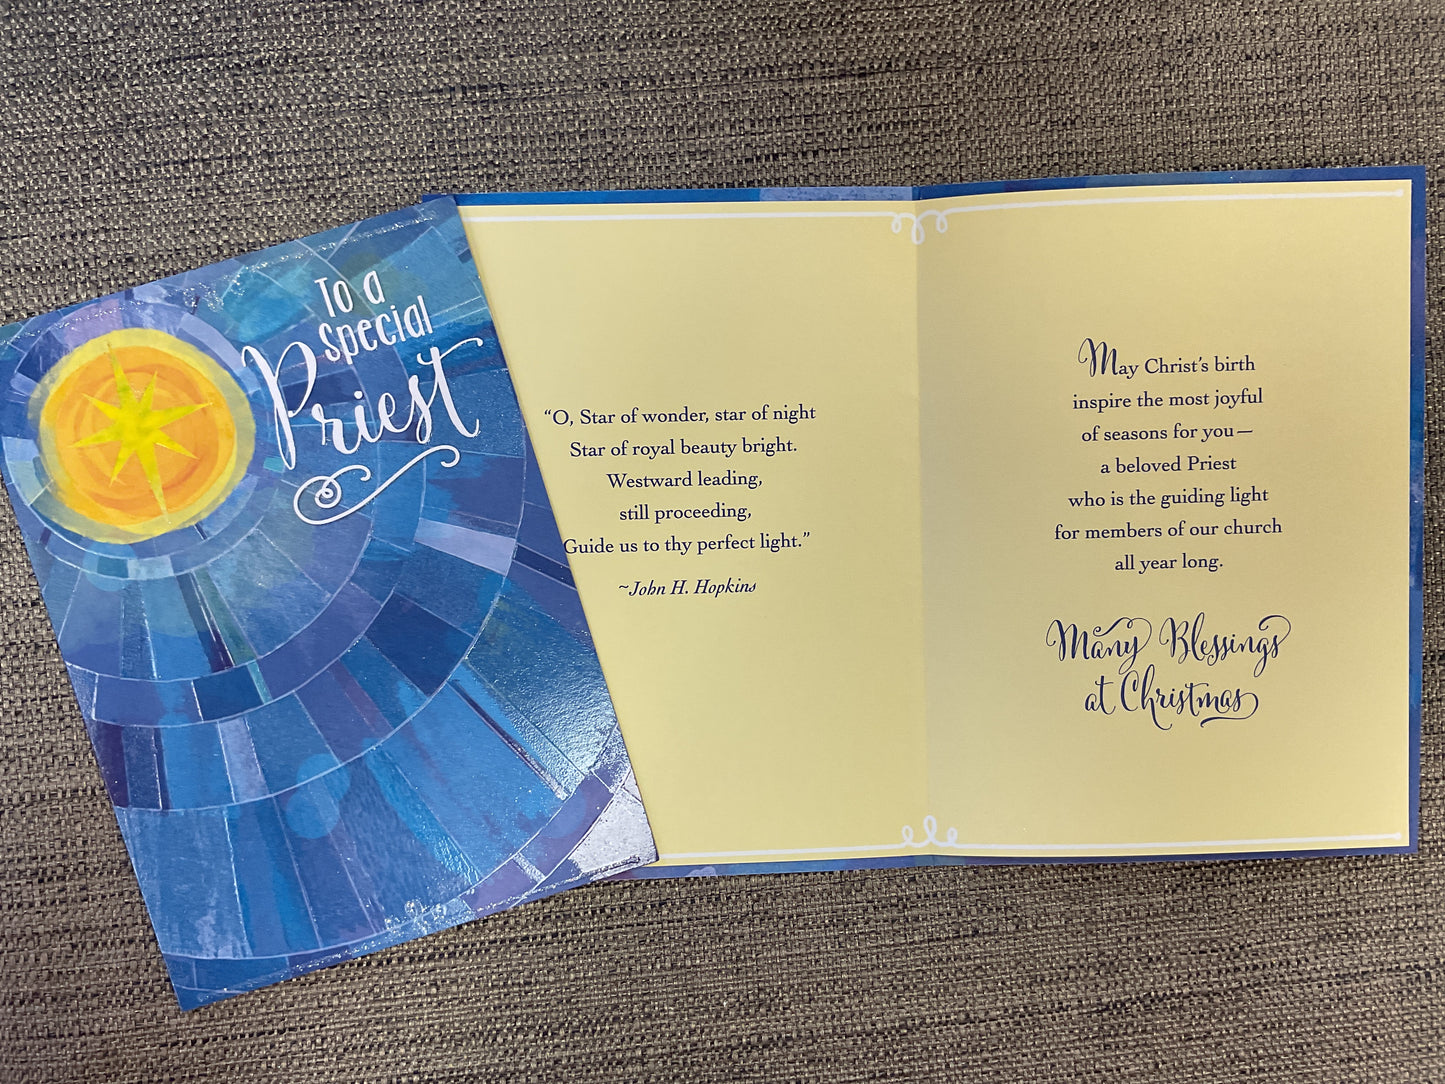 To a
special
Priest
“O, Star of wonder, star of night
Star of royal beauty bright.
Westward leading,
still proceeding,
Guide us to thy perfect light.”
~John H. Hopkins
May Christ’s birth
inspire the most joyful
of seasons for you—
a beloved Priest
who is the guiding light
for members of our church
all year long.
Many Blessings
at Christmas